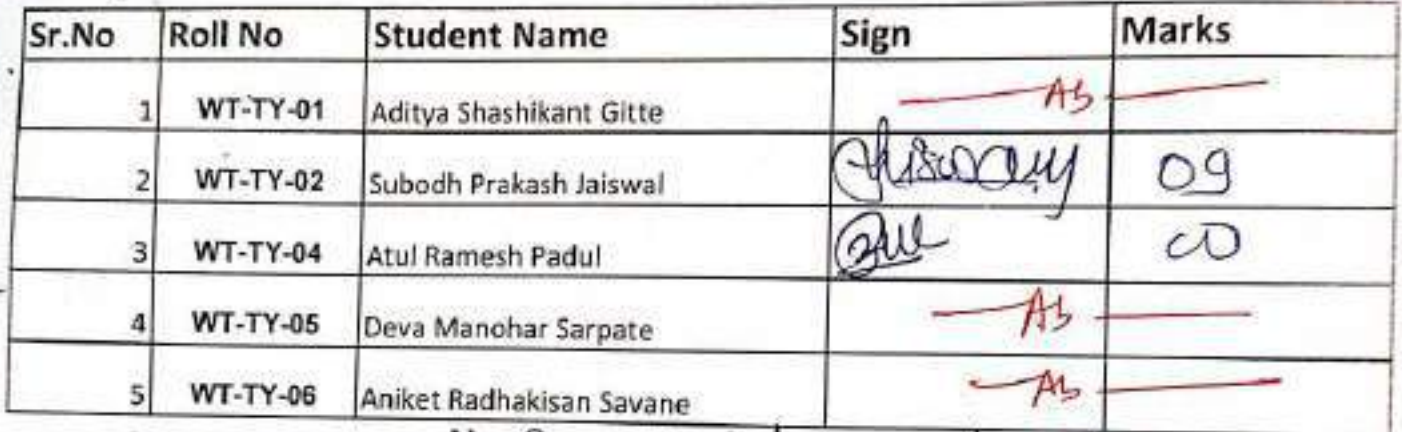 Sr.No Roll No Student Name Sign Marks
1 WT-TY-01 Aditya Shashikant Gitte Ab
2 WT-TY-02 Subodh Prakash Jaiswal 09
3 WT-TY-04 Atul Ramesh Padul
4 WT-TY-05 Deva Manohar Sarpate Ab
5 WT-TY-06 Aniket Radhakisan Savane Ab